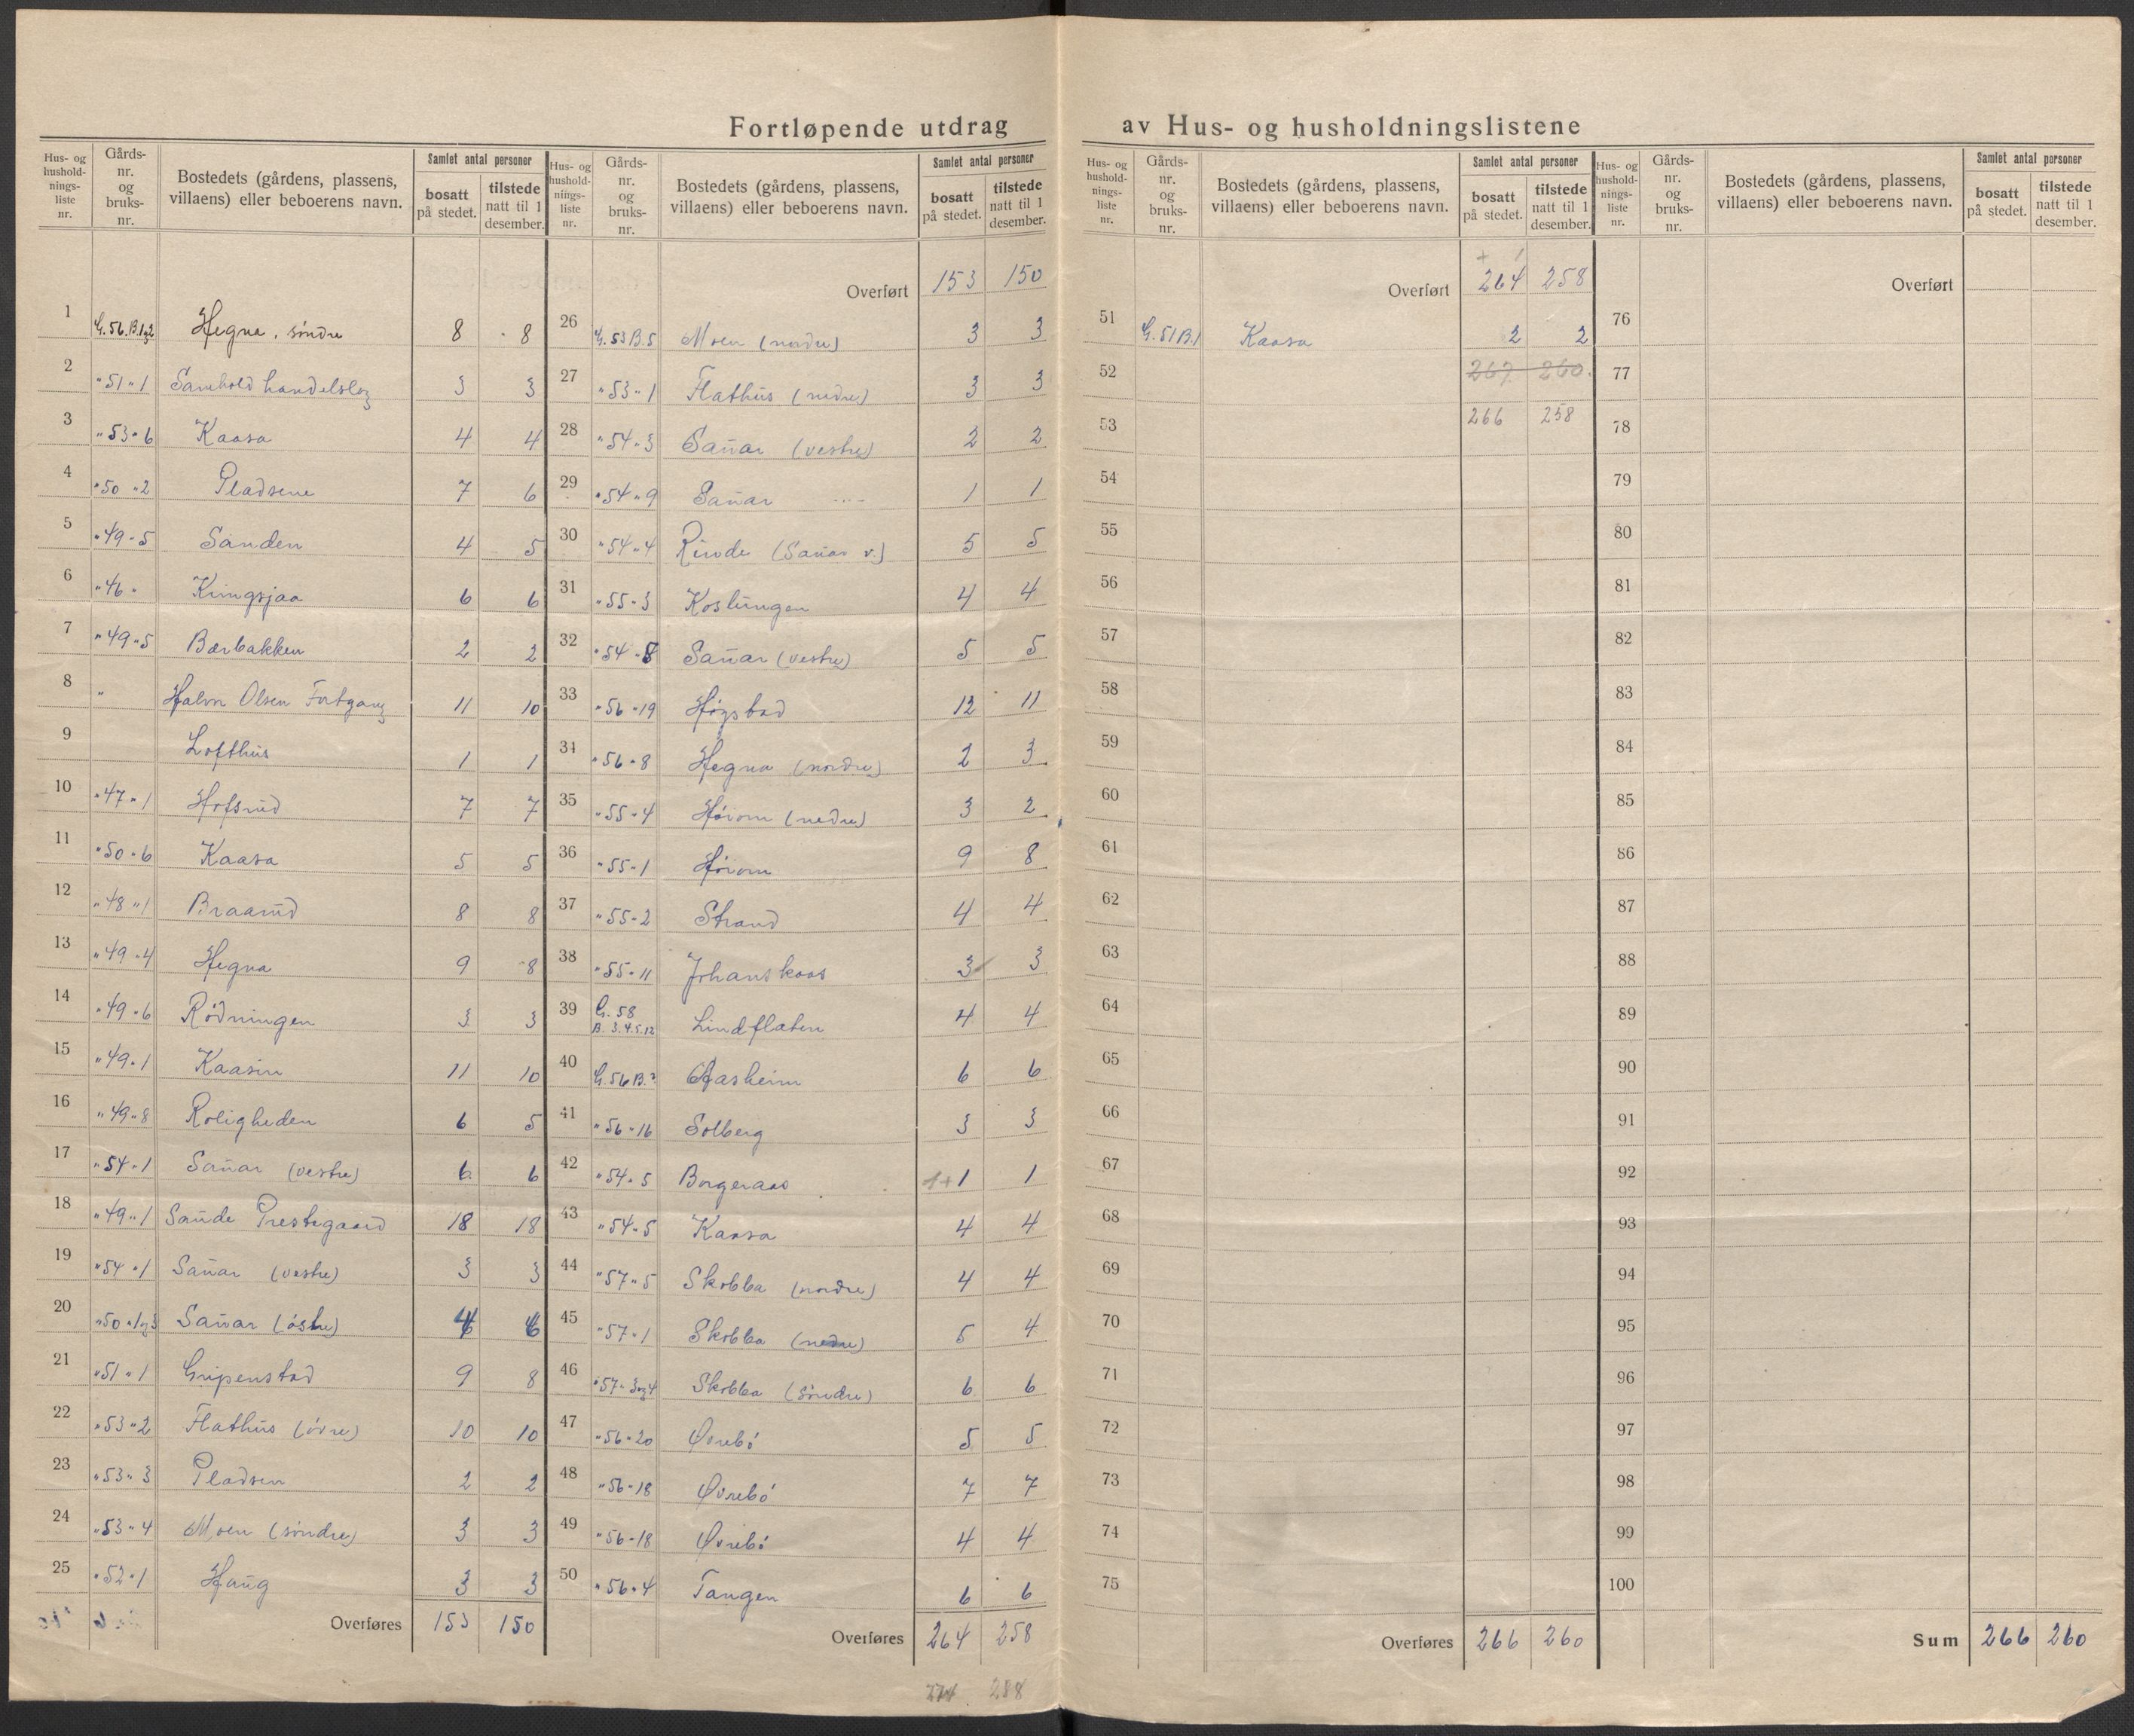 Fortløpende utdrag av Hus- og husholdningslistene
Hus- og hushold-nings-liste nr. | Gårds-nr. og bruks-nr. | Bostedets (gårdens, plassens, villaens) eller beboerens navn. | Samlet antal personer | bosatt på stedet. | tilstede natt til 1 desember.
1 G. 56. B. 1og2 Hegna, søndre 8 8
2 " 51 " 1 Samhold handelslag 3 3
3 " 53 " 6 Kaasa 4 4
4 " 50 " 2 Pladsene 7 6
5 " 49 " 5 Sanden 4 5
6 " 46 " Kringsjaa 6 6
7 " 49 " 5 Bærbakken 2 2
8 " Halvor Olsen Fortgang 11 10
9 Lofthus 1 1
10 " 47 " 1 Hofsrud 7 7
11 " 50 " 6 Kaasa 5 5
12 " 48 " 1 Braarud 8 8
13 " 49 " 4 Hegna 9 8
14 " 49 " 6 Rødningen 3 3
15 " 49 " 1 Kaasin 11 10
16 " 49 " 8 Roligheden 6 5
17 " 54 " 1 Sauar (vestre) 6 6
18 " 49 " 1 Saude Prestegaard 18 18
19 " 54 " 1 Sauar (vestre) 3 3
20 " 50 " 1og3 Sauar (østre)
21 " 51 " 1 Gripenstad 9 8
22 " 53 " 2 Flathus (øvre) 10 10
23 " 53 " 3 Pladsen 2 2
24 " 53 " 4 Moen (søndre) 3 3
25 " 52 " 1 Haug 3 3
Overføres 153 150
Hus- og hushold-nings-liste nr. | Gårds-nr. og bruks-nr. | Bostedets (gårdens, plassens, villaens) eller beboerens navn. | Samlet antal personer | bosatt på stedet. | tilstede natt til 1 desember.
Overført 153 150
26 G. 53 B. 5 Moen (nordre) 3 3
27 " 53 " 1 Flathus (nedre) 3 3
28 " 54 " 3 Sauar (vestre) 2 2
29 " 54 " 9 Sauar ---- 1 1
30 " 54 " 4 (Sauar v.) 5 5
31 " 55 " 3 Koslungen 4 4
32 " 54 " 8 Sauar (vestre) 5 5
33 " 56 " 19 Høgstad 12 11
34 " 56 " 8 Hegna (nordre) 2 3
35 " 55 " 4 Hørom (nedre) 3 2
36 " 55 " 1 Hørom 9 8
37 " 55 " 2 Strand 4 4
38 " 55 " 11 Johanskaas 3 3
39 G. 58 B. 3.4.5.12 Lindflaten 4 4
40 G. 56 B. Aasheim 6 6
41 " 56 " 16 Solberg 3 3
42 " 54 " 5 Borgeraas 1+1 1
43 " 54 " 5 Kaasa 4 4
44 " 57 " 5 Skobba (nordre) 4 4
45 " 57 " 1 Skobba (nedre) 5 4
46 " 57 " 3og4 Skobba (søndre) 6 6
47 " 56 " 20 Ørebø 5 5
48 " 56 " 18 Ørebø 7 7
49 " 56 " 18 Ørebø 4 4
50 " 56 " 4 Tangen 6 6
Overføres 264 258
288
Hus- og hushold-nings-liste nr. | Gårds-nr. og bruks-nr. | Bostedets (gårdens, plassens, villaens) eller beboerens navn. | Samlet antal personer | bosatt på stedet. | tilstede natt til 1 desember.
Overført 264 258
51 G. 51 B. 1 Kaasa 2 2
52 267 260
53 266 258
54
55
56
57
58
59
60
61
62
63
64
65
66
67
68
69
70
71
72
73
74
75
Overføres 266 260
Hus- og hushold-nings-liste nr. | Gårds-nr. og bruks-nr. | Bostedets (gårdens, plassens, villaens) eller beboerens navn. | Samlet antal personer | bosatt på stedet. | tilstede natt til 1 desember.
Overført
76
77
78
79
80
81
82
83
84
85
86
87
88
89
90
91
92
93
94
95
96
97
98
99
100
Sum 266 260